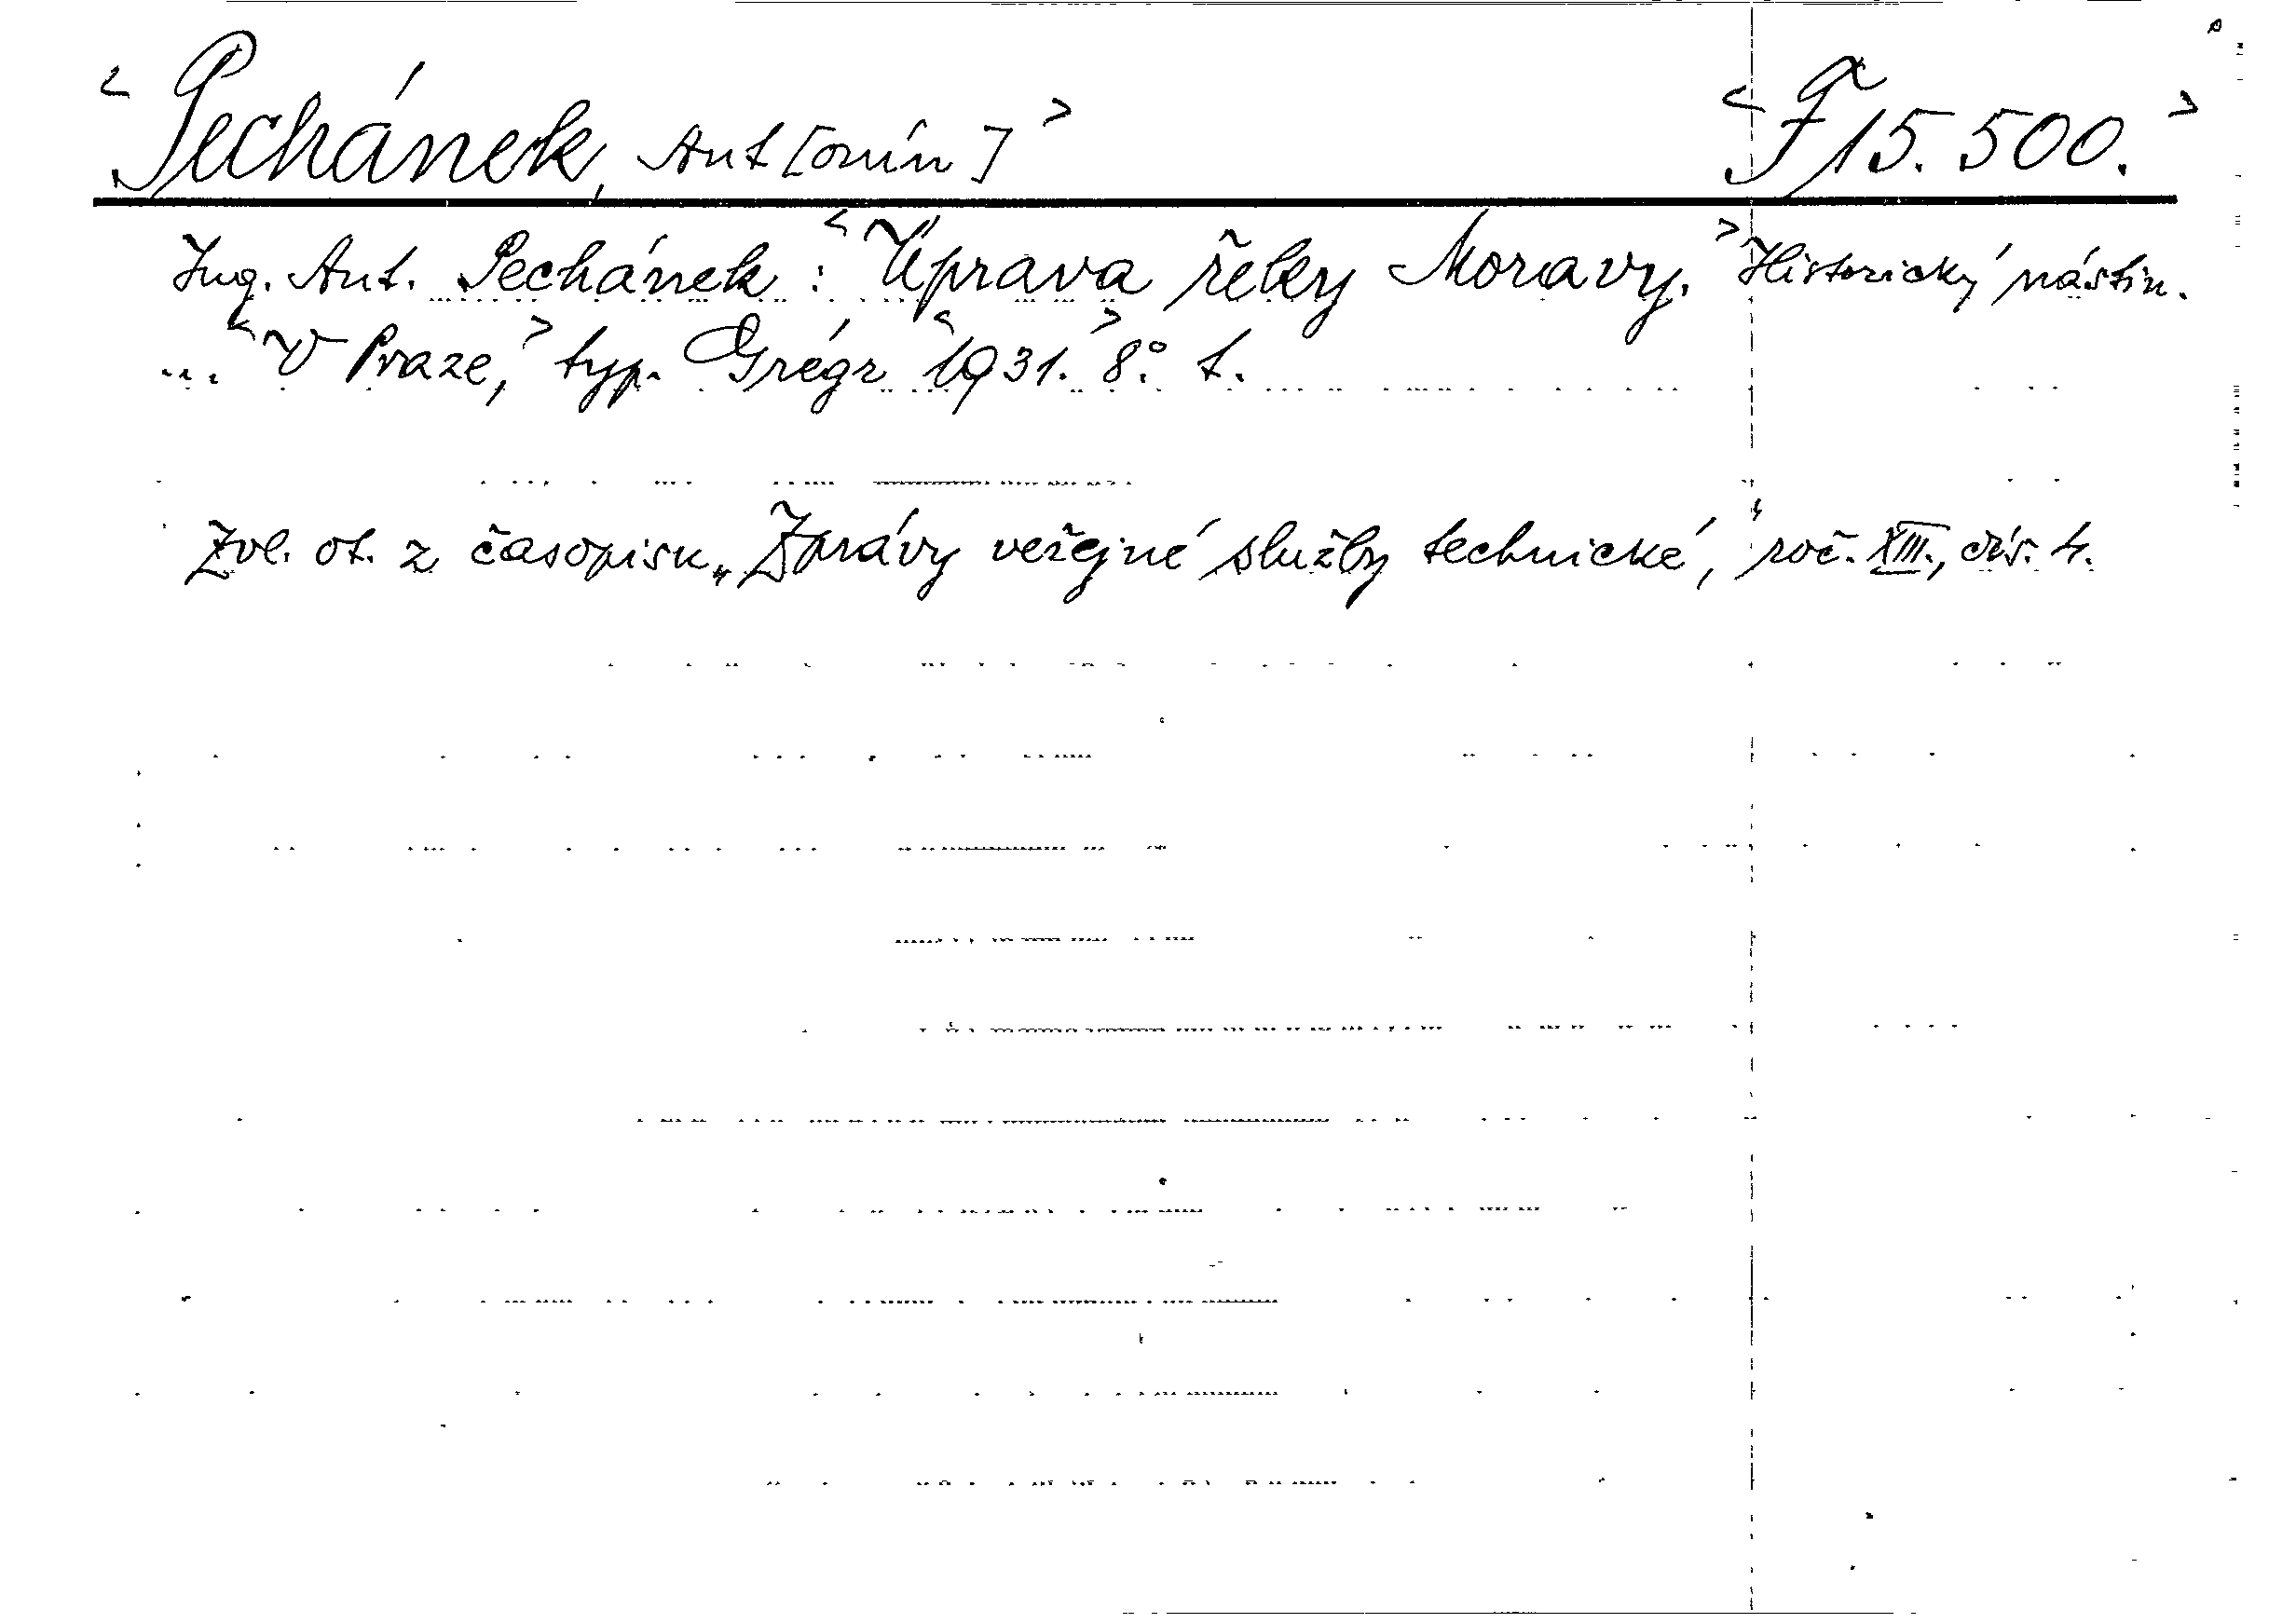 < Pechánek, Ant[onín] > < F 15.500. >
Ing. Ant. Pechánek : < Úprava řeky Moravy. > Historický nástin.
... < V Praze, > typ. Grégr < 1931. > 8.° t.
Zvl. ot. z časopisu „Zprávy veřejné služby technické", roč. XIII., čís. 4.